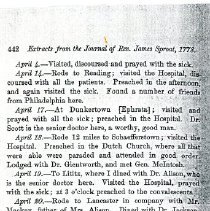 442 Extracts from the Journal of Rev. James Sproat, 1778.
April 4.—Visited, discoursed and prayed with the sick.
April 14.—Rode to Reading; visited the Hospital, dis-
coursed with all the patients. Preached in the afternoon,
and again visited the sick. Found a number of friends
from Philadelphia here.
April 17.—At Dunkertown [Ephrata]; visited and
prayed with all the sick; preached in the Hospital. Dr.
Scott is the senior doctor here, a worthy, good man.
April 18.—Rode 12 miles to Schaefferstown; visited the
Hospital. Preached in the Dutch Church, where all that
were able were paraded and attended in good order.
Lodged with Dr. Glentworth, and met Gen. McIntosh.
April 19.—To Lititz, where I dined with Dr. Alison, who
is the senior doctor here. Visited the Hospital, prayed
with the sick; at 3 o'clock preached to the convalescents.
April 20.—Rode to Lancaster in company with Mr.
father of Mrs. Alison. Dined with Dr. Jackson